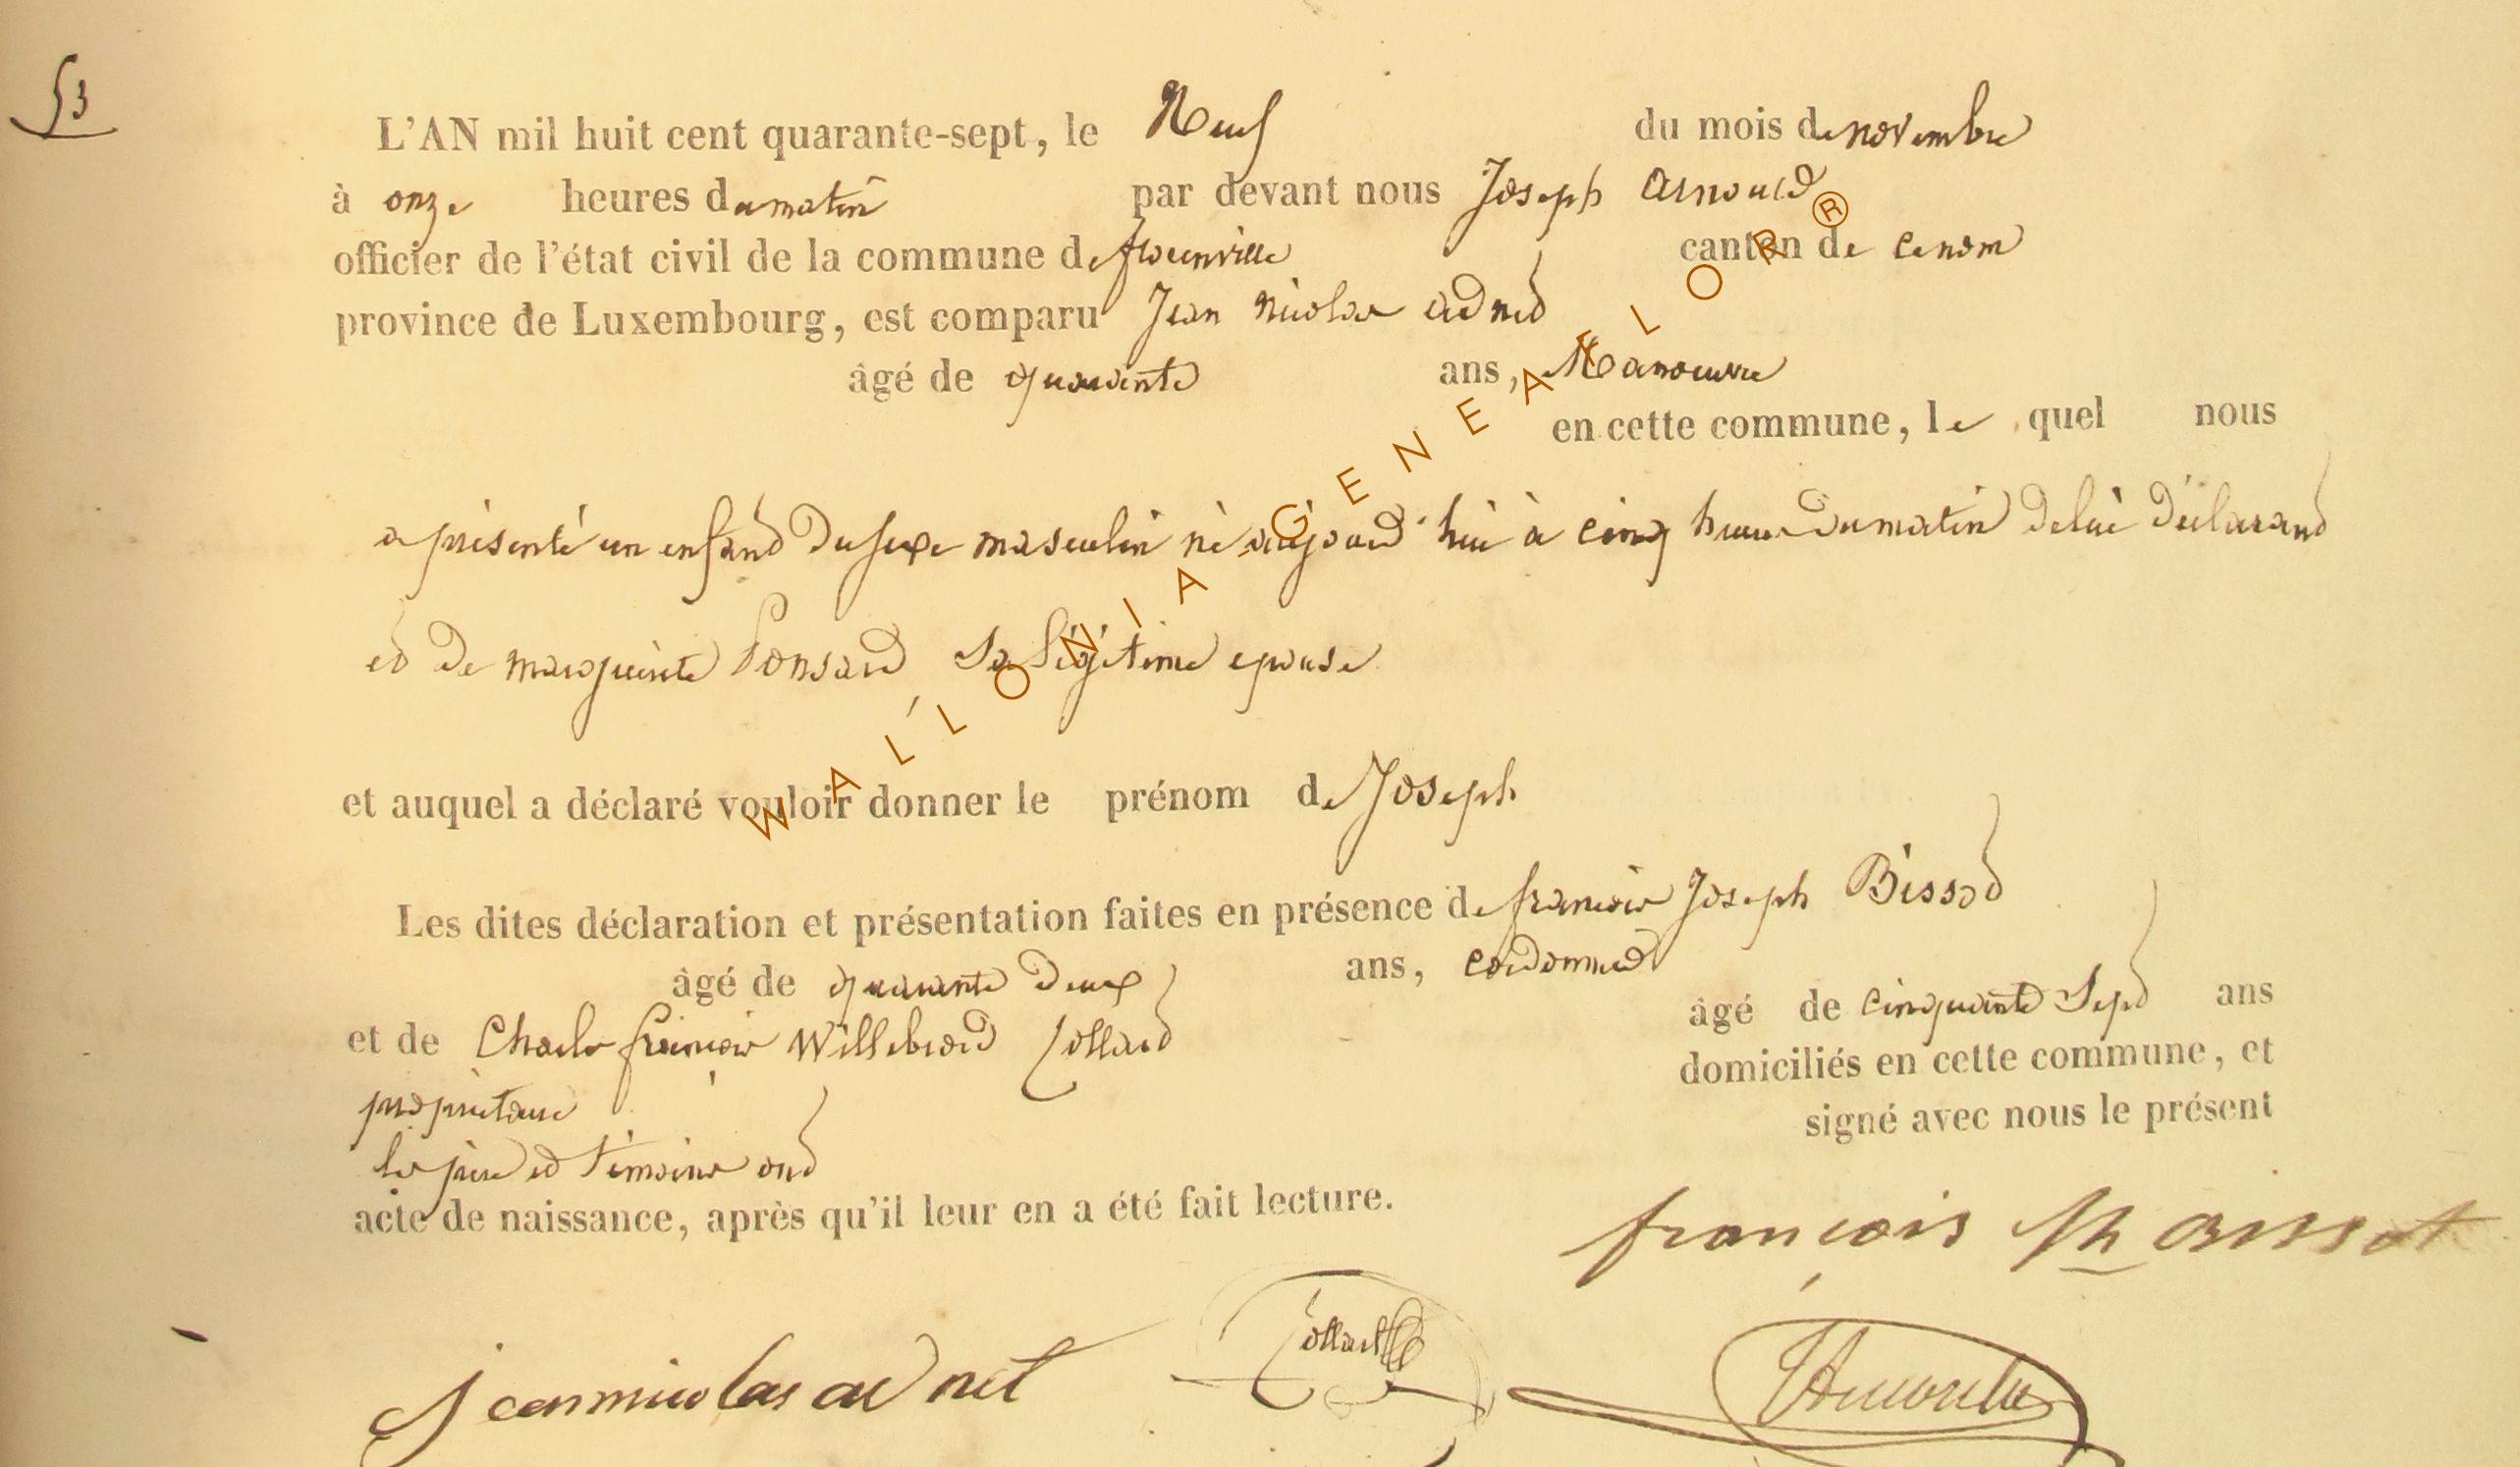 53
L'AN mil huit cent quarante-sept, le Neuf du mois de novembre
à onze heures du matin par devant nous Joseph Arnould
officier de l'état civil de la commune de florenville canton de ce nom
province de Luxembourg, est comparu Jean Nicolas adnet
âgé de quarante ans, Manoeuvre
en cette commune, le quel nous
a présenté un enfant du sexe masculin né aujourd'hui à cinq heures du matin de lui déclarant
et de marguerite Ponsard, Sa légitime epouse
et auquel a déclaré vouloir donner le prénom de Joseph
Les dites déclaration et présentation faites en présence de francois Joseph
âgé de quarante deux ans, cordonnier
et de Charles francois Willebrord Collard âgé de cinquante Sept ans
propriétaire domiciliés en cette commune, et
les père et témoins ont signé avec nous le présent
acte de naissance, après qu'il leur en a été fait lecture.
françois
jean nicolas adnet Collard
WALLONIA GENEALOR ®